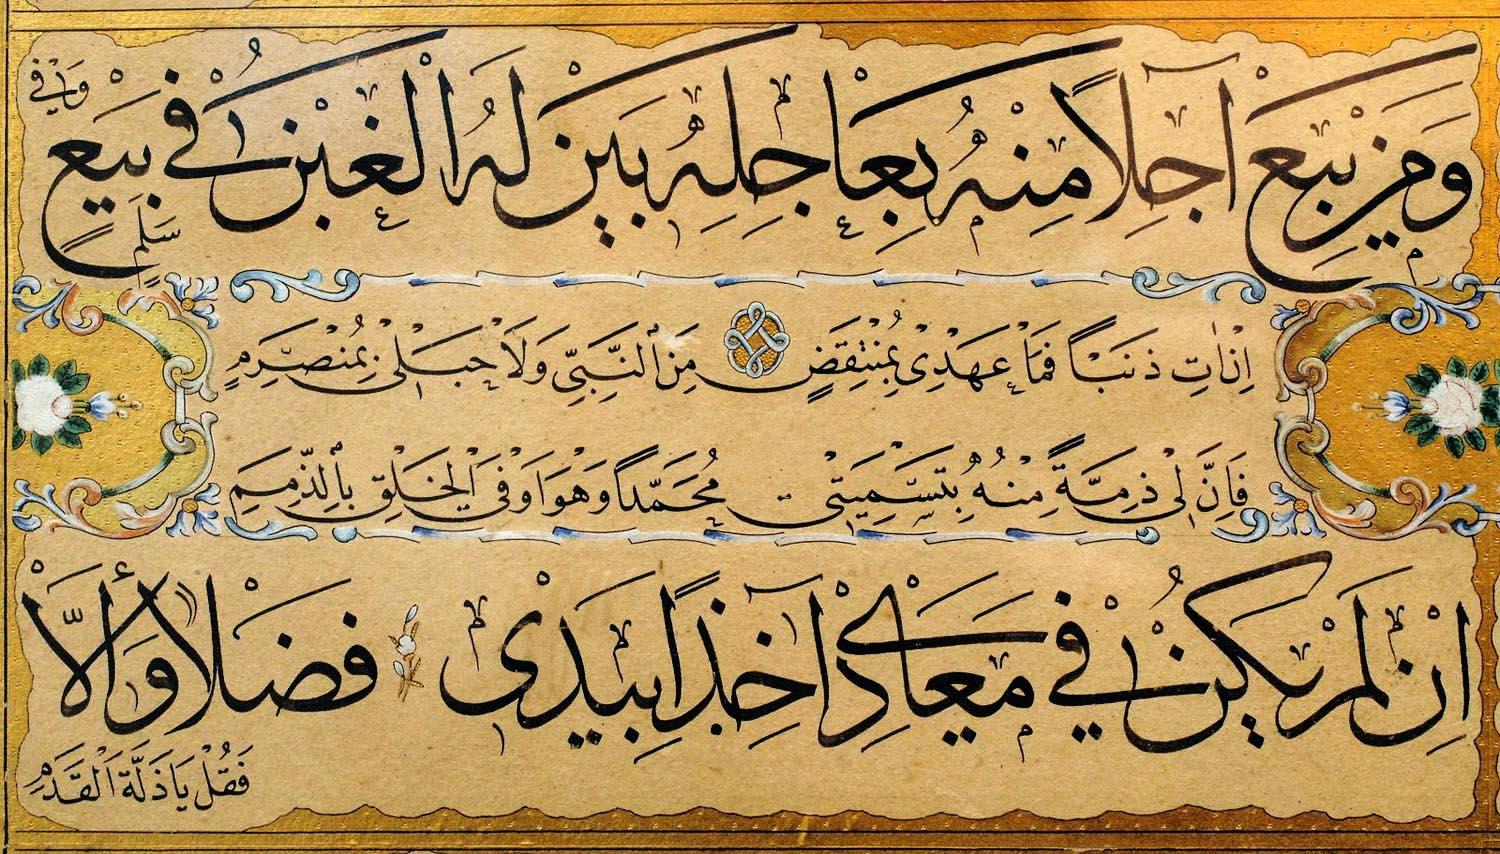 وَمَنْ يَبِعْ آجِلًا مِنْهُ بِعَاجِلِهِ يَبِنْ لَهُ الْغَبْنُ فِي بَيْعٍ وَفِي سَلَمٍ
اِنْ اٰتِ ذَنْبًا فَمَا عَهْدِي بِمُنْتَقِضٍ مِنَ النَّبِيِّ وَلَا حَبْلِي بِمُنْصَرِمٍ
فَاِنَّ لِي ذِمَّةً مِنْهُ بِتَسْمِيَتِي مُحَمَّدًا وَهُوَ اَوْفَى الْخَلْقِ بِالذِّمَمِ
اِنْ لَمْ يَكُنْ فِي مَعَادِي آخِذًا بِيَدِي فَضْلًا وَاِلَّا
فَقُلْ يَا ذَلَّةَ الْقَدَمِ